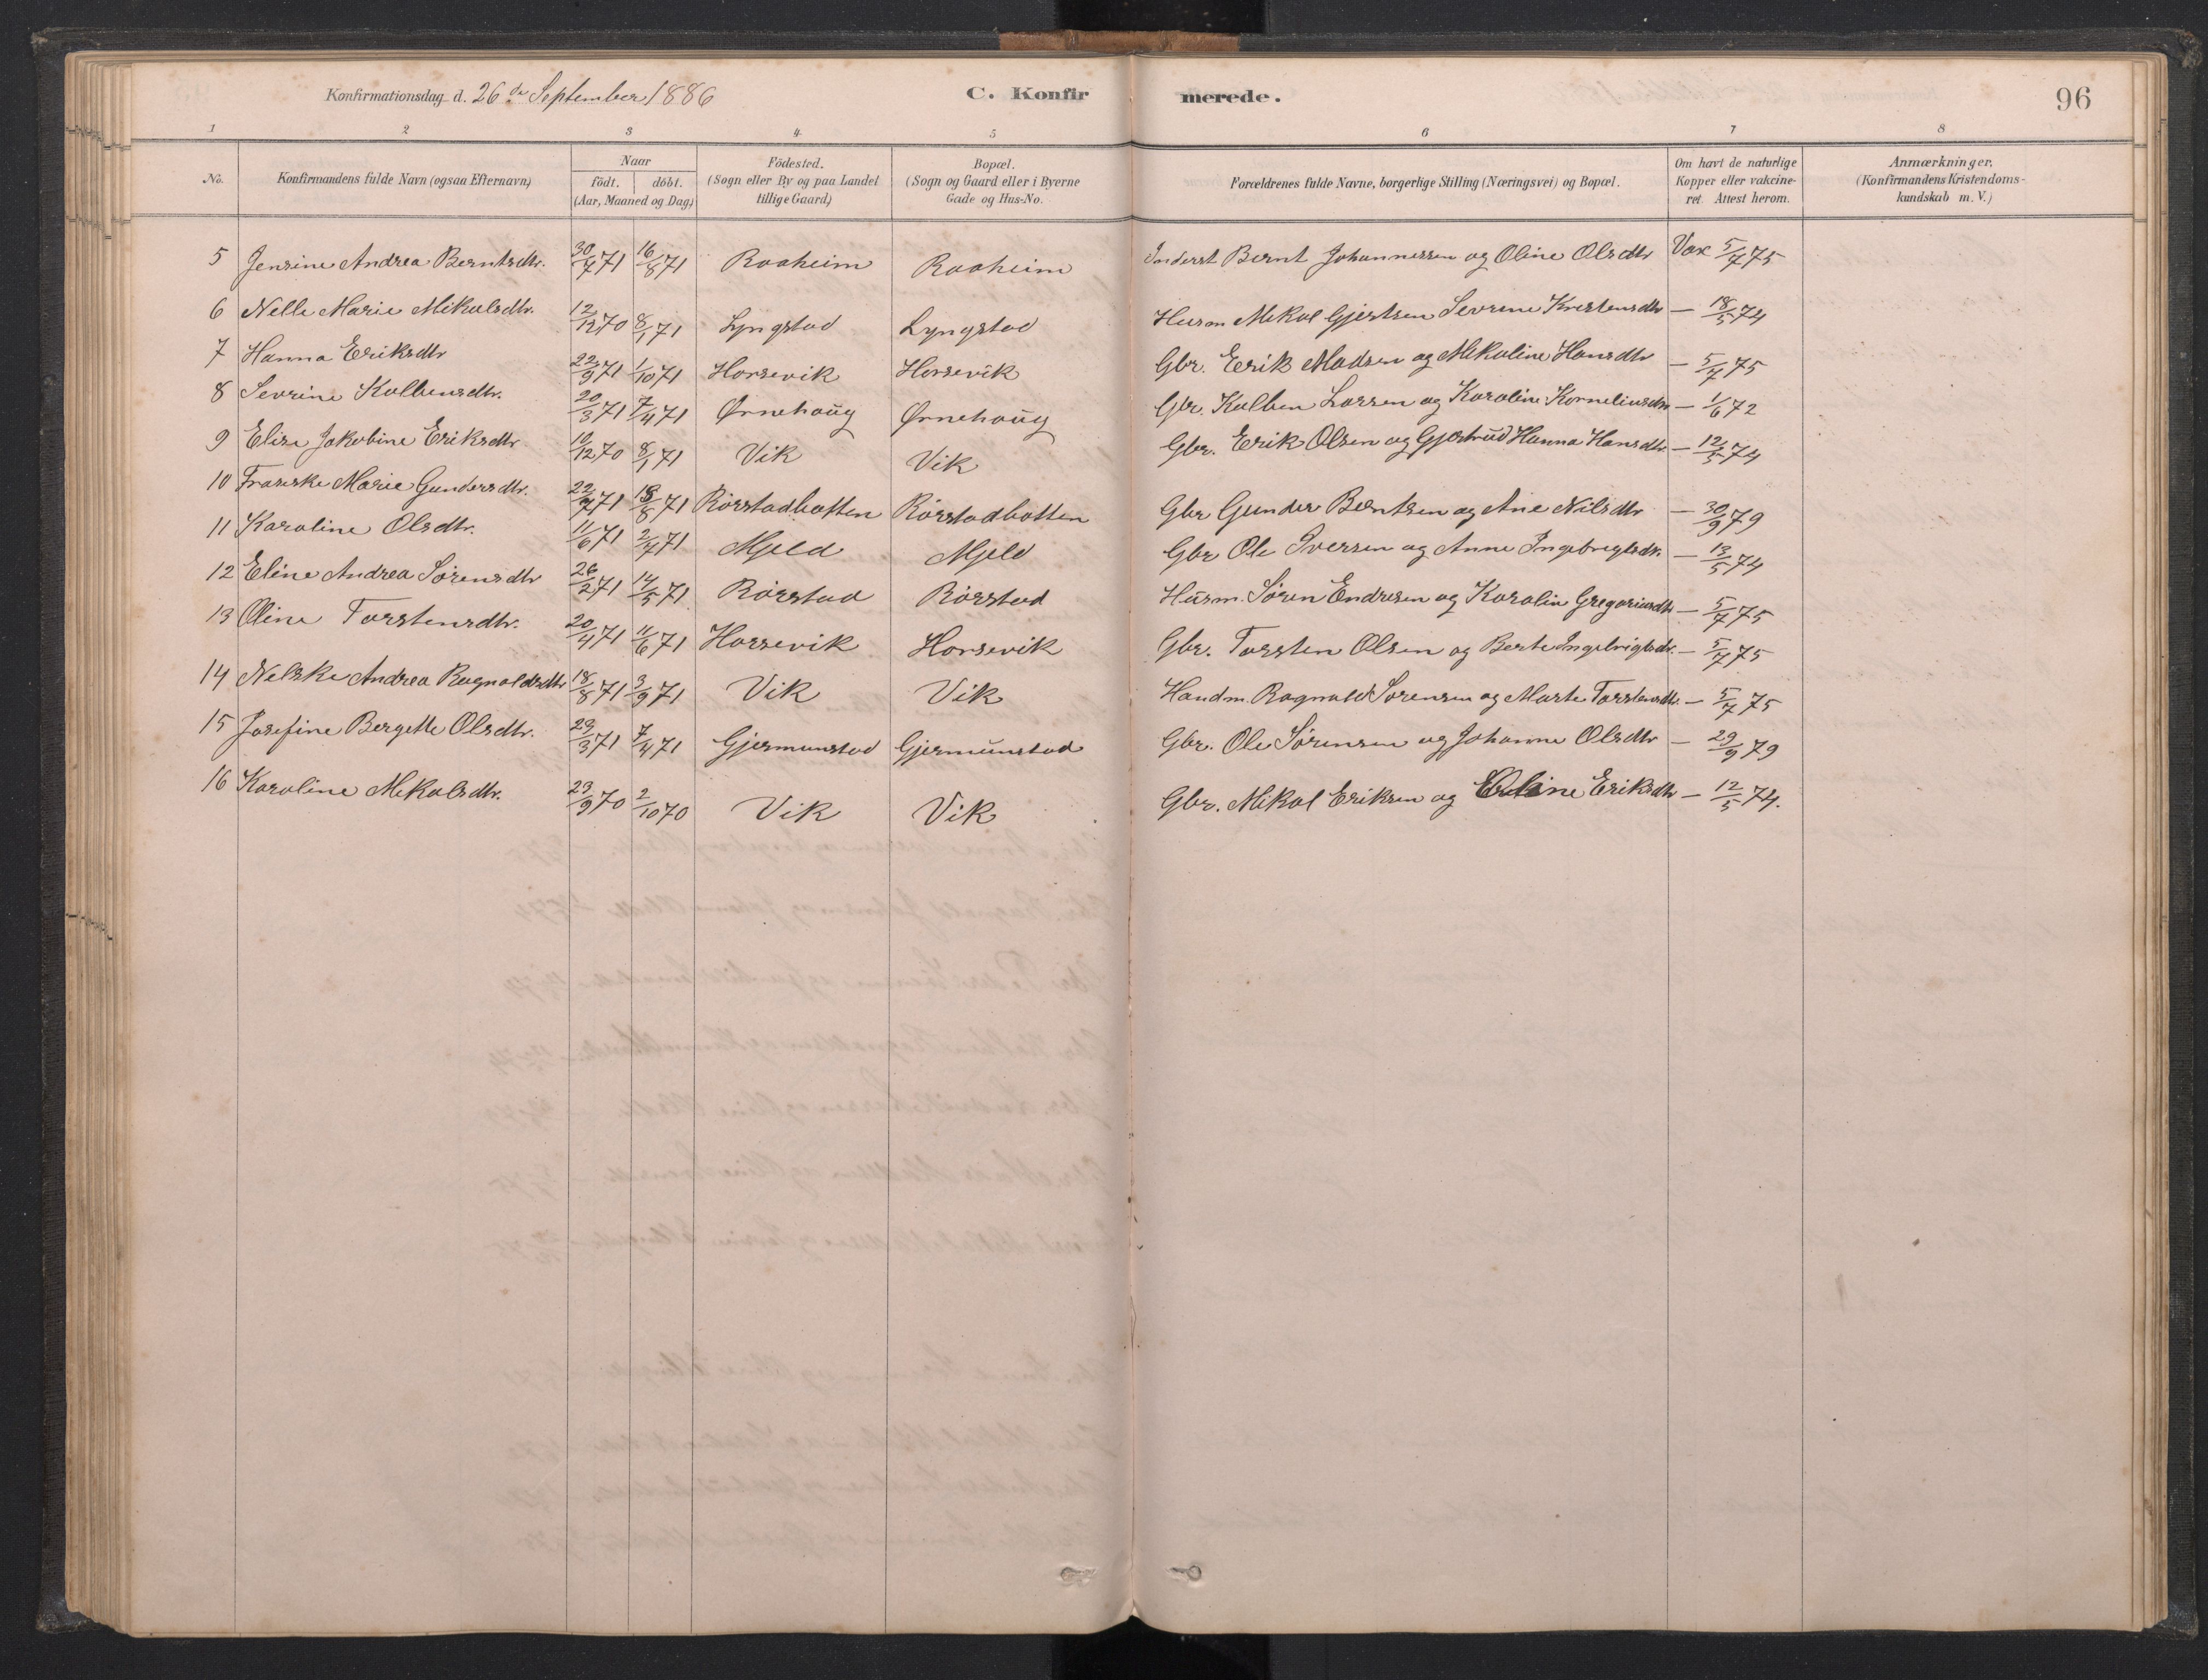 Konfirmationsdag d. 26de September 1886 C. Konfirmerede. 96
1 2 3 4 5 6 7 8
No. Konfirmandens fulde Navn (ogsaa Efternavn) Naar födt. döbt. (Aar, Maaned og Dag) Födested. (Sogn eller By og paa Landet tillige Gaard) Bopæl. (Sogn og Gaard eller i Byerne Gade og Hus-No. Forældrenes fulde Navne, borgerlige Stilling (Næringsvei) og Bopæl. Om havt de naturlige Kopper eller vakcineret. Attest herom. Anmærkninger. (Konfirmandens Kristendomskundskab m. V.)
5 Jensine Andrea Berntsdtr. 30/7 71 16/8 71 Roaheim Roaheim Inderst Bernt Johannessen og Oline Olsdtr Vax 5/7 75
6 Nelle Marie Mikalsdtr. 12/12 70 8/1 71 Lyngstad Lyngstad Husm Mikal Gjertsen Sevrine Kristensdtr – 18/5 74
7 Hanna Eriksdtr 22/9 71 1/10 71 Horsevik Horsevik Gbr. Eerik Madsen og Mikaline Hansdtr – 5/7 75
8 Sevrine Kolbensdtr. 20/3 71 7/4 71 Ørnehoug Ørnehoug Gbr. Kolben Larsen og Karoline Korneliusdtr – 1/6 72
9 Elise Jakobine Eriksdtr 10/12 70 8/1 71 Vik Vik Gbr. Erik Olsen og Gjertrud Hanna Hansdtr. – 12/5 74
10 Franske Marie Gundersdtr. 22/7 71 13/8 71 Rörstadbotten Rörstadbotten Gbr Gunder Berntsen og Ane Nilsdtr – 30/9 79
11 Karoline Olsdtr. 11/6 71 2/7 71 Mjeld Mjeld Gbr Ole Iversen og Anne Ingebregtsdtr. – 13/5 74
12 Eline Andrea Sörensdtr 26/2 71 14/5 71 Rörstad Rörstad Husm. Sören Endresen og Karolin Gregoriusdtr – 5/7 75
13 Oline Torstensdtr. 20/4 71 11/6 71 Horsevik Horsevik Gbr. Torsten Olsen og Berte Ingebrigtsdtr. – 5/7 75
14 Nelske Andrea Ragnaldsdtr 18/8 71 3/9 71 Vik Vik Handm. Ragnald Sørensen og Marte Torstensdtr. – 5/7 75
15 Josefine Bergette Olsdtr. 23/3 71 7/4 71 Gjermunstad Gjermunstad Gbr. Ole Sørensen og Johanne Olsdtr – 29/9 79
16 Karoline Mikalsdtr. 23/9 70 2/10 70 Vik Vik Gbr. Mikal Eriksen og Eriksdtr – 12/5 74.